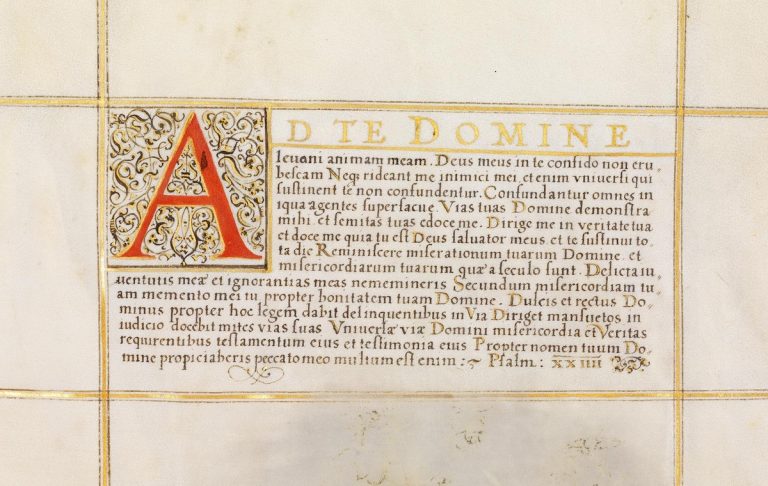 AD TE DOMINE
levavi animam meam. Deus meus in te confido non eru-
bescam Neq; rideant me inimici mei, etenim vniversi qui
sustinent te non confundentur. Confundantur omnes in
iqua agentes supersacue. Vias tuas Domine demonstra
mihi. et semitas tuas edoce me. Dirige me in veritate tua
et doce me quia tu est Deus saluator meus. et te sustinui to
ta die Reminiscere miserationum tuarum Domine. et
misericordiarum tuarum quæ a seculo sunt. Delicta iu,
ventutis meæ et ignorantias meas nememineris Secundum misericordiam tu,
am memento mei tu propter bonitatem tuam Domine. Dulcis et rectus Do-
minus propter hoc legem dabit delinquentibus in Via Diriget mansuetos in
iudicio docebit mites vias suas Vniversæ viæ Domini misericordia et Veritas
requirentibus testamentum eius et testimonia eius Propter nomen tuum Do-
mine propiciaberis peccato meo multum est enim :~ Psalm: XXIIII